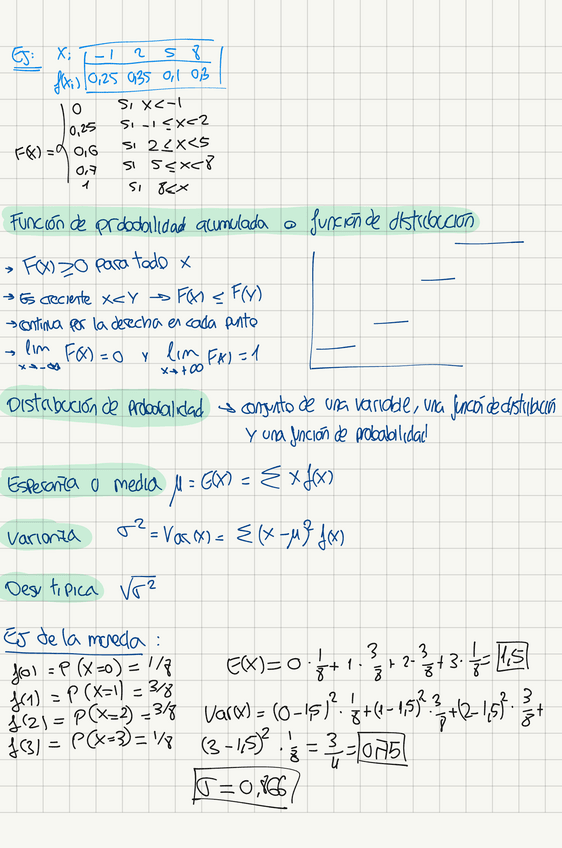 Ej: Xi -1 2 5 8
f(xi) 0,25 0,35 0,1 0,3
F(x) = 0 si x < -1
0,25 si -1 ≤ x < 2
0,6 si 2 ≤ x < 5
0,7 si 5 ≤ x < 8
1 si 8 < x
Función de probabilidad acumulada o función de distribución
→ F(x) ≥ 0 para todo x
→ Es creciente x < y → F(x) ≤ F(y)
→ continua por la derecha en cada punto
→ lim x→-∞ F(x) = 0 y lim x→+∞ F(x) = 1
Distribución de probabilidad → conjunto de una variable, una función de distribución
y una función de probabilidad
Esperanza o media μ = E(x) = Σ x f(x)
Varianza σ² = Var(x) = Σ (x - μ)² f(x)
Desv típica √σ²
Ej de la moneda:
f(0) = P(X=0) = 1/8
f(1) = P(X=1) = 3/8
f(2) = P(X=2) = 3/8
f(3) = P(X=3) = 1/8
E(x) = 0 · 1/8 + 1 · 3/8 + 2 · 3/8 + 3 · 1/8 = 1,5
Var(x) = (0 - 1,5)² · 1/8 + (1 - 1,5)² · 3/8 + (2 - 1,5)² · 3/8 +
(3 - 1,5)² · 1/8 = 3/4 = 0,75
σ = 0,866